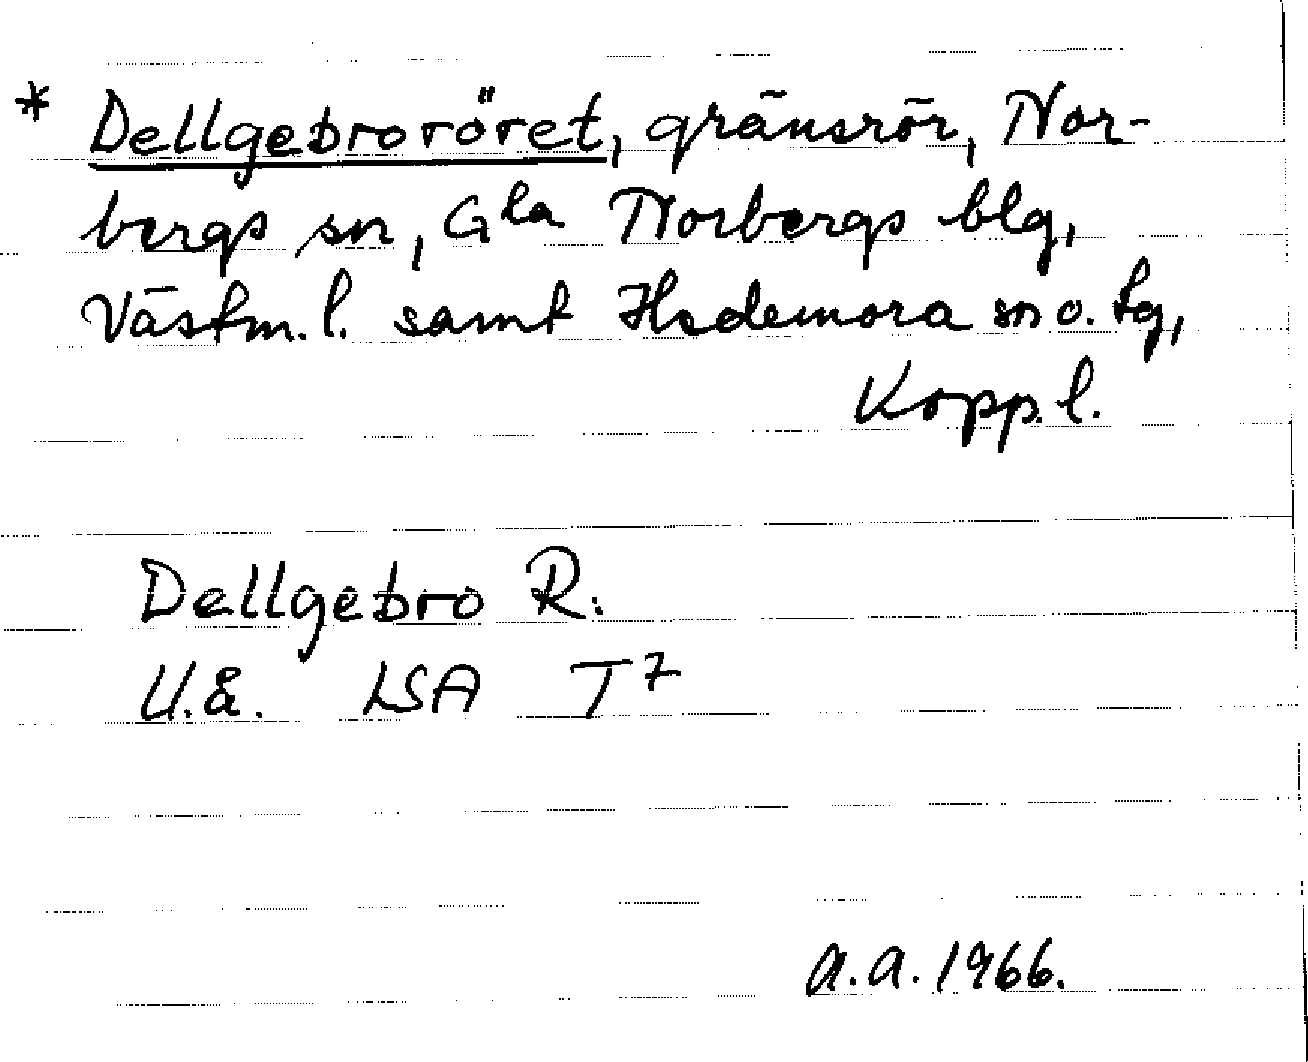 * Dellgebroröret, gränsrör, Nor-
bergs sn, Gla Norbergs blg,
Västm. l. samt Hedemora sn o. tg,
Kopp. l.
Dellgebro R.
U.å. LSA T 7
A.A. 1966.